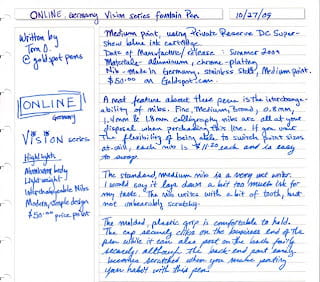 ONLINE, Germany Vision series fountain Pen 10/27/09
Written by
Tom O.
@ goldspot pens
Medium point, using Private Reserve DC Super-
show blue ink cartridge.
Date of Manufacture/release: Summer 2009
Materials - aluminum, chrome-plating
Nib - Made in Germany, stainless steel, Medium point.
$50.00 on Goldspot.com
ONLINE
Germany
VISION series
Highlights
Aluminum body
Light weight
Interchangeable Nibs
Modern, simple design
$50.00 price point
A neat feature about these pens is the interchange-
ability of nibs. Fine, Medium, Broad, 0.8mm,
1.4mm & 1.8mm calligraphy nibs are all at your
disposal when purchasing this line. If you want
the flexibility of being able to switch point sizes
at-will, each nib is $11.20 each and is easy
to swap.
The standard, medium nib is a very wet writer.
I would say it lays down a bit too much ink for
my taste. The nib writes with a bit of tooth, but
not unbearably scratchy.
The molded, plastic grip is comfortable to hold.
The cap securely clips on the business end of the
pen while it can also post on the back fairly
securely; although the back-end part easily
becomes scratched when you make posting
your habit with this pen.